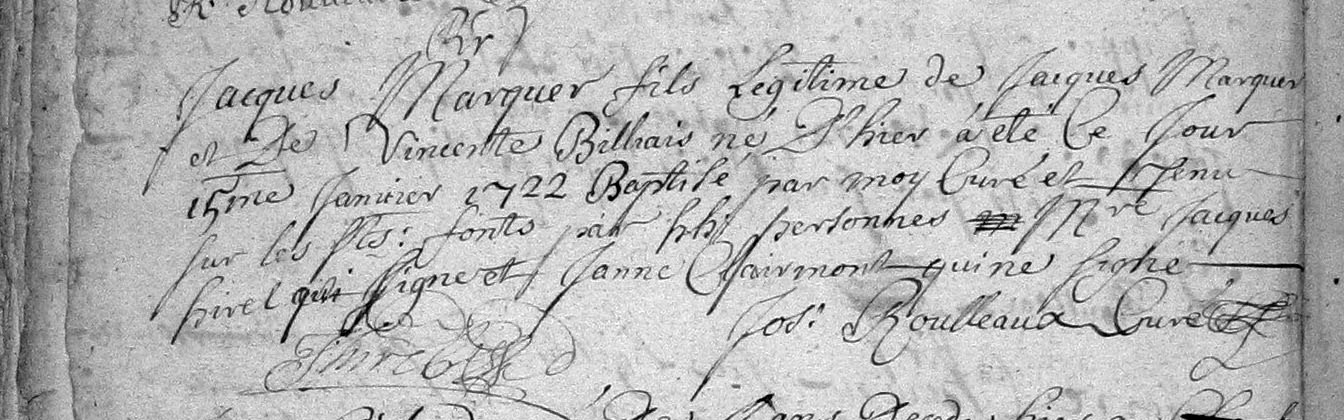 Jacques Marquer fils Legitime de Jacques Marquer
et De Vincente Billiais né D'hier a été Ce Jour
15me Janvier 1722 Baptisé par moy Curé et Tenu
sur les Sts: fonts par hh personnes Mre Jacques
hirel qui signe et Janne Clairmont qui ne signe
Jos: Roulleaux Curé